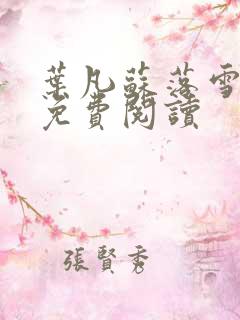 葉凡蘇落雪
免費閱讀
張賢秀